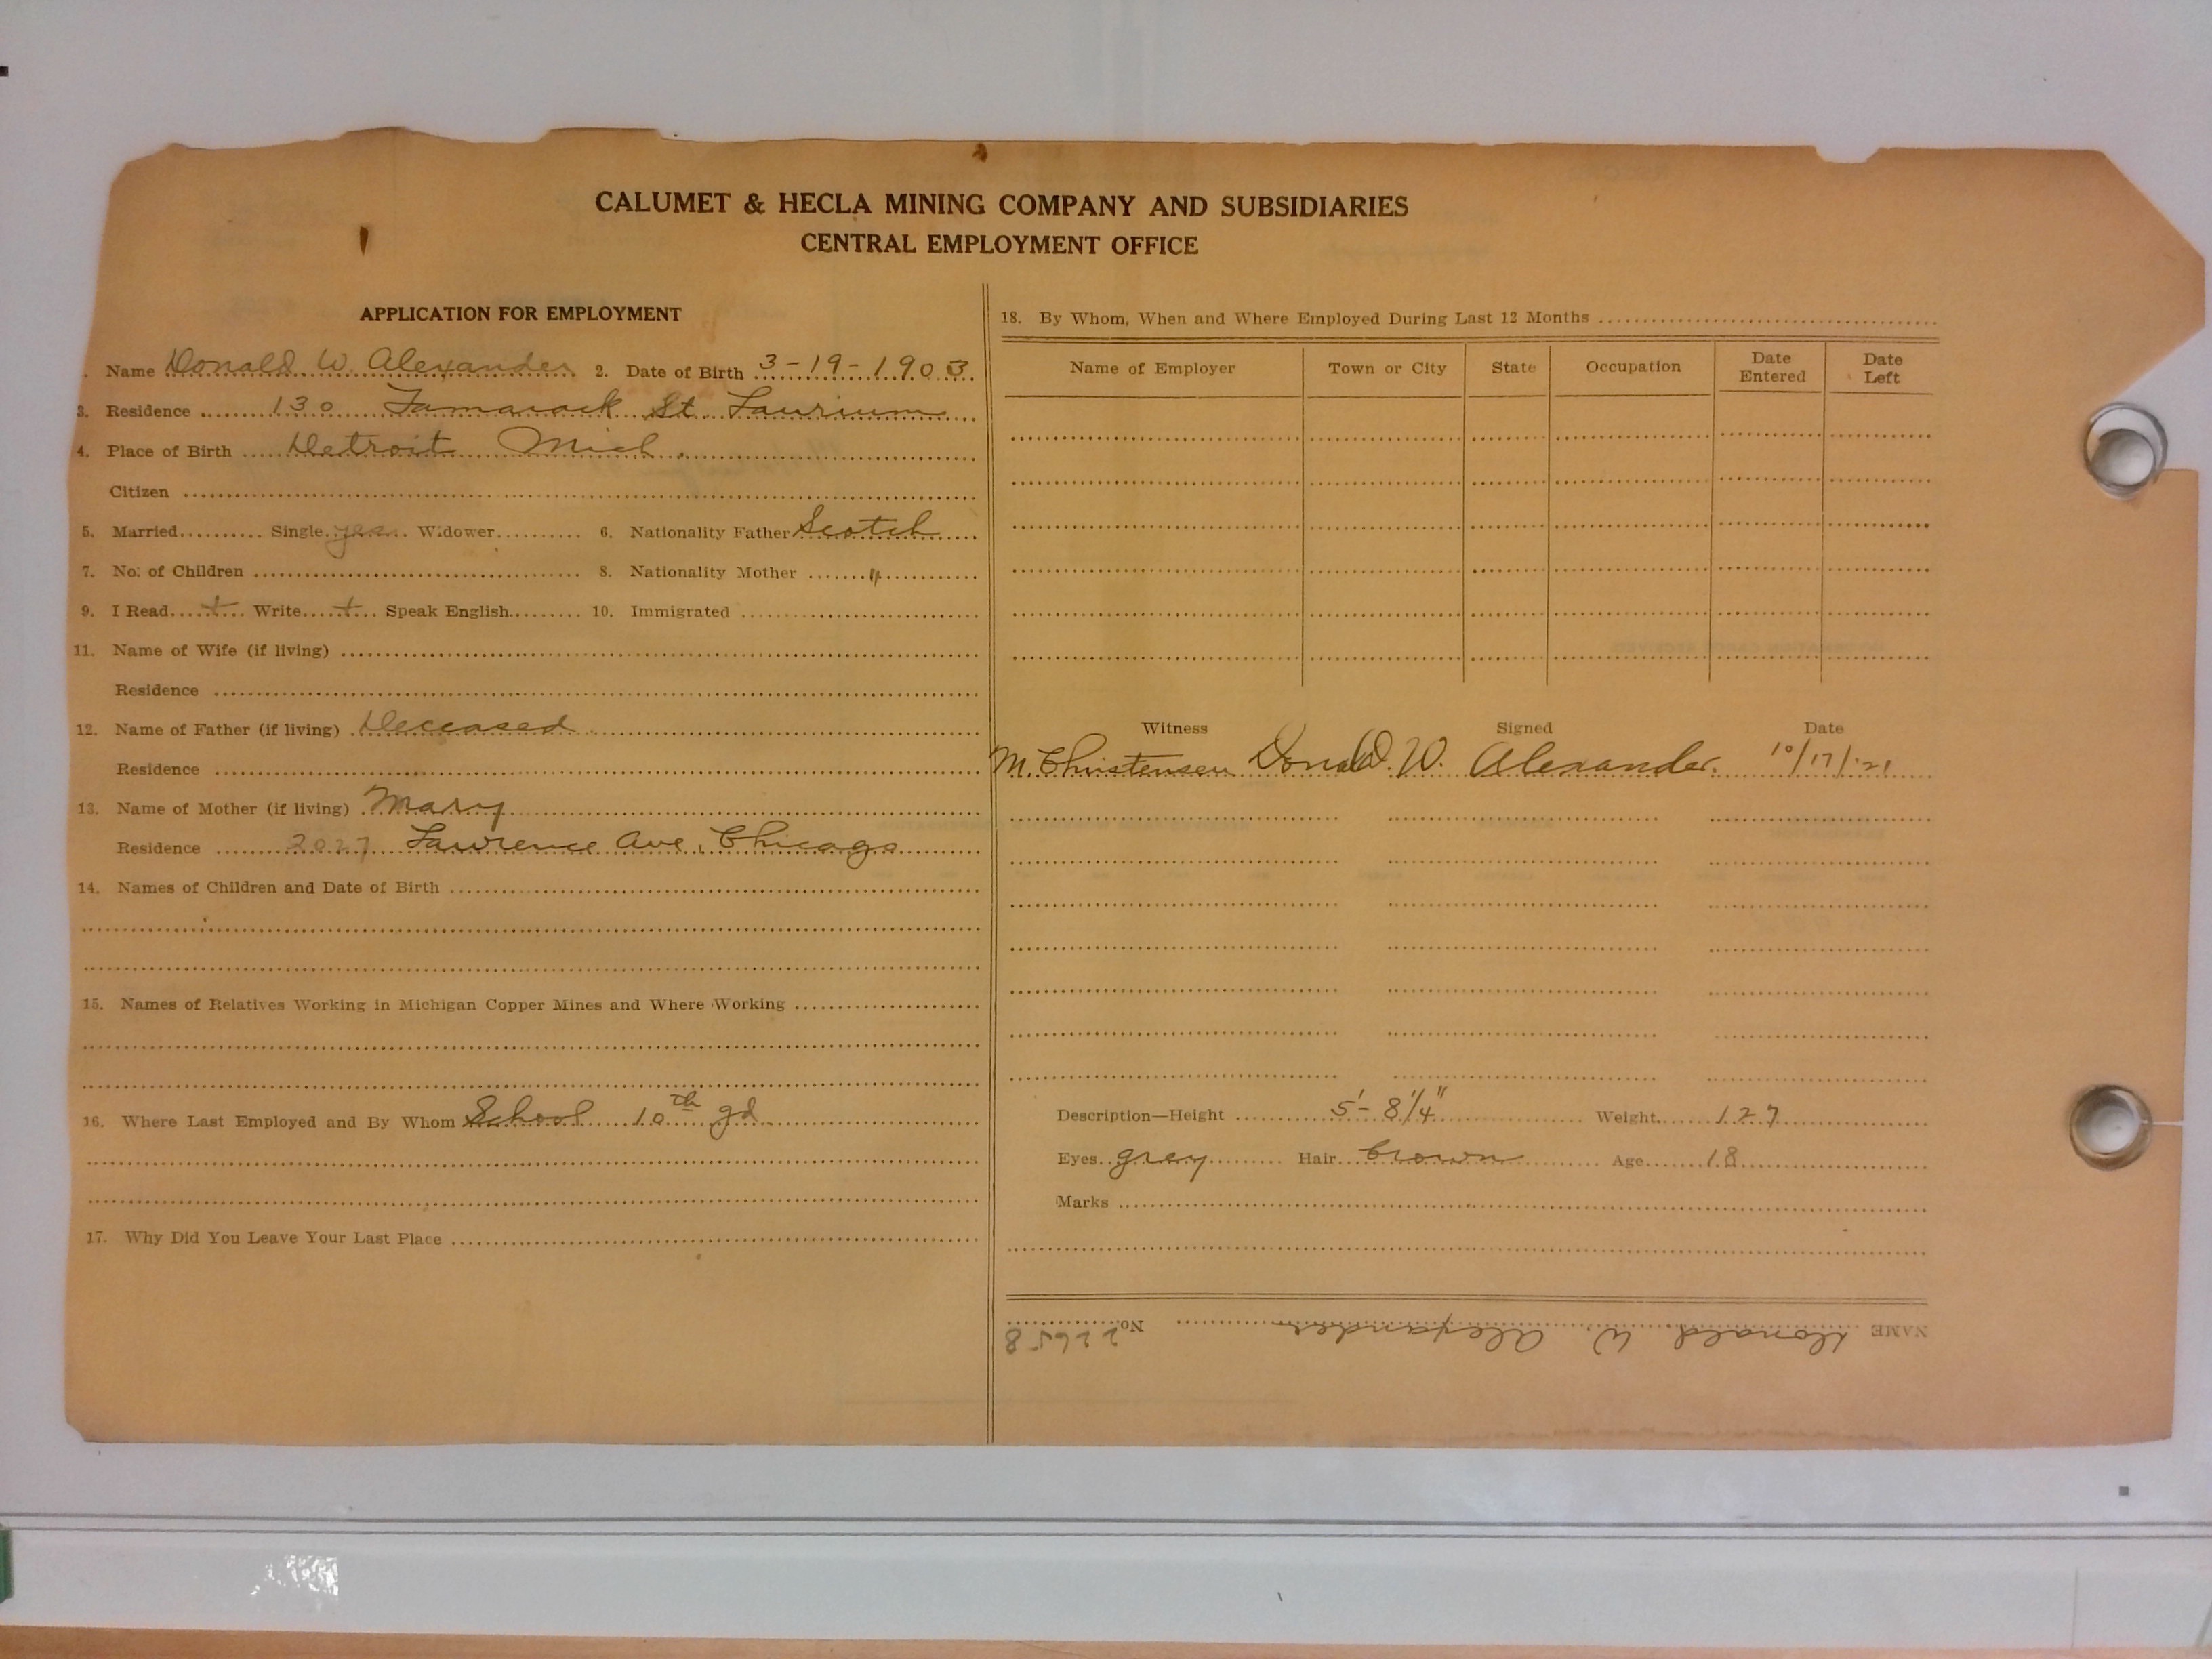 CALUMET & HECLA MINING COMPANY AND SUBSIDIARIES
CENTRAL EMPLOYMENT OFFICE
APPLICATION FOR EMPLOYMENT
. Name Donald W. Alexander 2. Date of Birth 3-19-1903
3. Residence 130 Tamarack St. Laurium
4. Place of Birth Detroit Mich.
Citizen
5. Married Single yes Widower 6. Nationality Father Scotch
7. No. of Children 8. Nationality Mother "
9. I Read + Write + Speak English 10. Immigrated
11. Name of Wife (if living)
Residence
12. Name of Father (if living) Deceased
Residence
13. Name of Mother (if living) Mary
Residence 2027 Lawrence Ave, Chicago
14. Names of Children and Date of Birth
15. Names of Relatives Working in Michigan Copper Mines and Where Working
16. Where Last Employed and By Whom School 10th gd
17. Why Did You Leave Your Last Place
18. By Whom, When and Where Employed During Last 12 Months
Name of Employer Town or City State Occupation Date Entered Date Left
Witness Signed Date
M. Christensen Donald W. Alexander. 10/17/'21
Description—Height 5'- 8 1/4" Weight 127
Eyes grey Hair brown Age 18
Marks
NAME Donald W. Alexander No. 22658